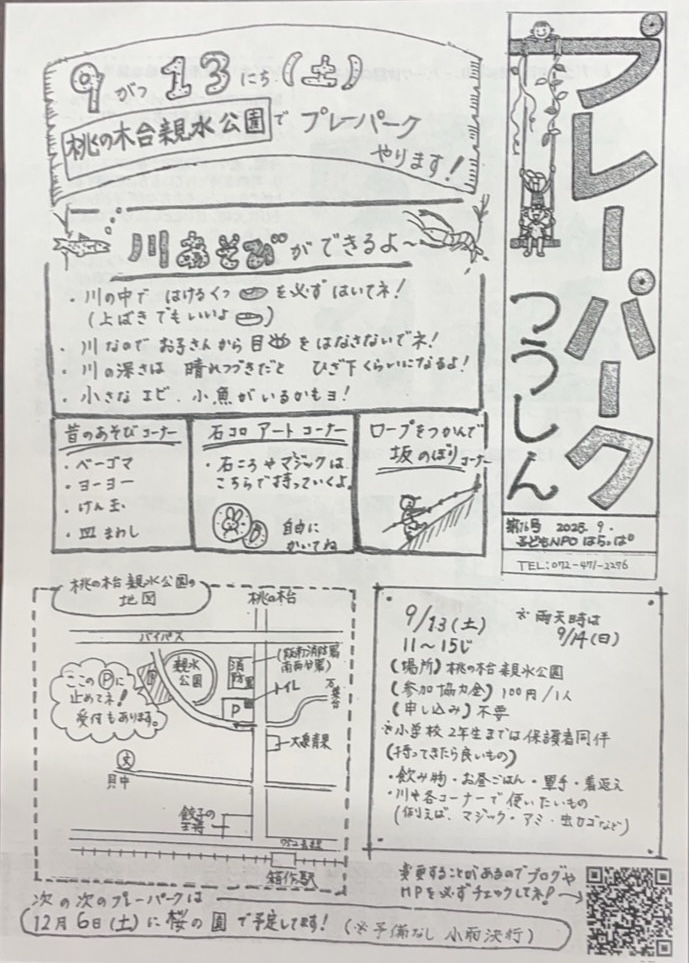 プレーパーク
つうしん
第76号 2025. 9.
子どもNPO はらっぱ
TEL: 072-471-2276
9がつ13にち(土)
桃の木台親水公園で プレーパーク
やります!
川あそびができるよ〜
・川の中で はけるくつ を必ずはいてネ!
(上ばきでもいいよ )
・川なので お子さんから目 をはなさないでネ!
・川の深さは 晴れつづきだと ひざ下くらいになるよ!
・小さな エビ、小魚がいるかもヨ!
昔のあそびコーナー
・ベーゴマ
・ヨーヨー
・けん玉
・皿まわし
石コロ アート コーナー
・石ころやマジックは
こちらで持っていくよ。
自由に
かいてね
ロープをつかんで
坂のぼりコーナー
桃の木台親水公園の
地図
桃の木台
バイパス
親水
公園
P
消防署
トイレ
P
大奥青果
ここのPに
止めてネ!
受付もあります。
文
貝中
餃子の
王将
箱作駅
9/13(土)
※ 雨天時は
9/14(日)
11〜15じ
(場所) 桃の木台 親水公園
(参加協力金) 100円/1人
(申し込み) 不要
※小学校2年生までは保護者同伴
(持ってきたら良いもの)
・飲み物・お昼ごはん・軍手・着返え
・川や各コーナーで使いたいもの
(例えば、マジック・アミ・虫カゴなど)
変更することがあるのでブログや
HPを必ずチェックしてネ!
次の次のプレーパークは
12月6日(土)に桜の園で予定してます! (※予備なし 小雨決行)